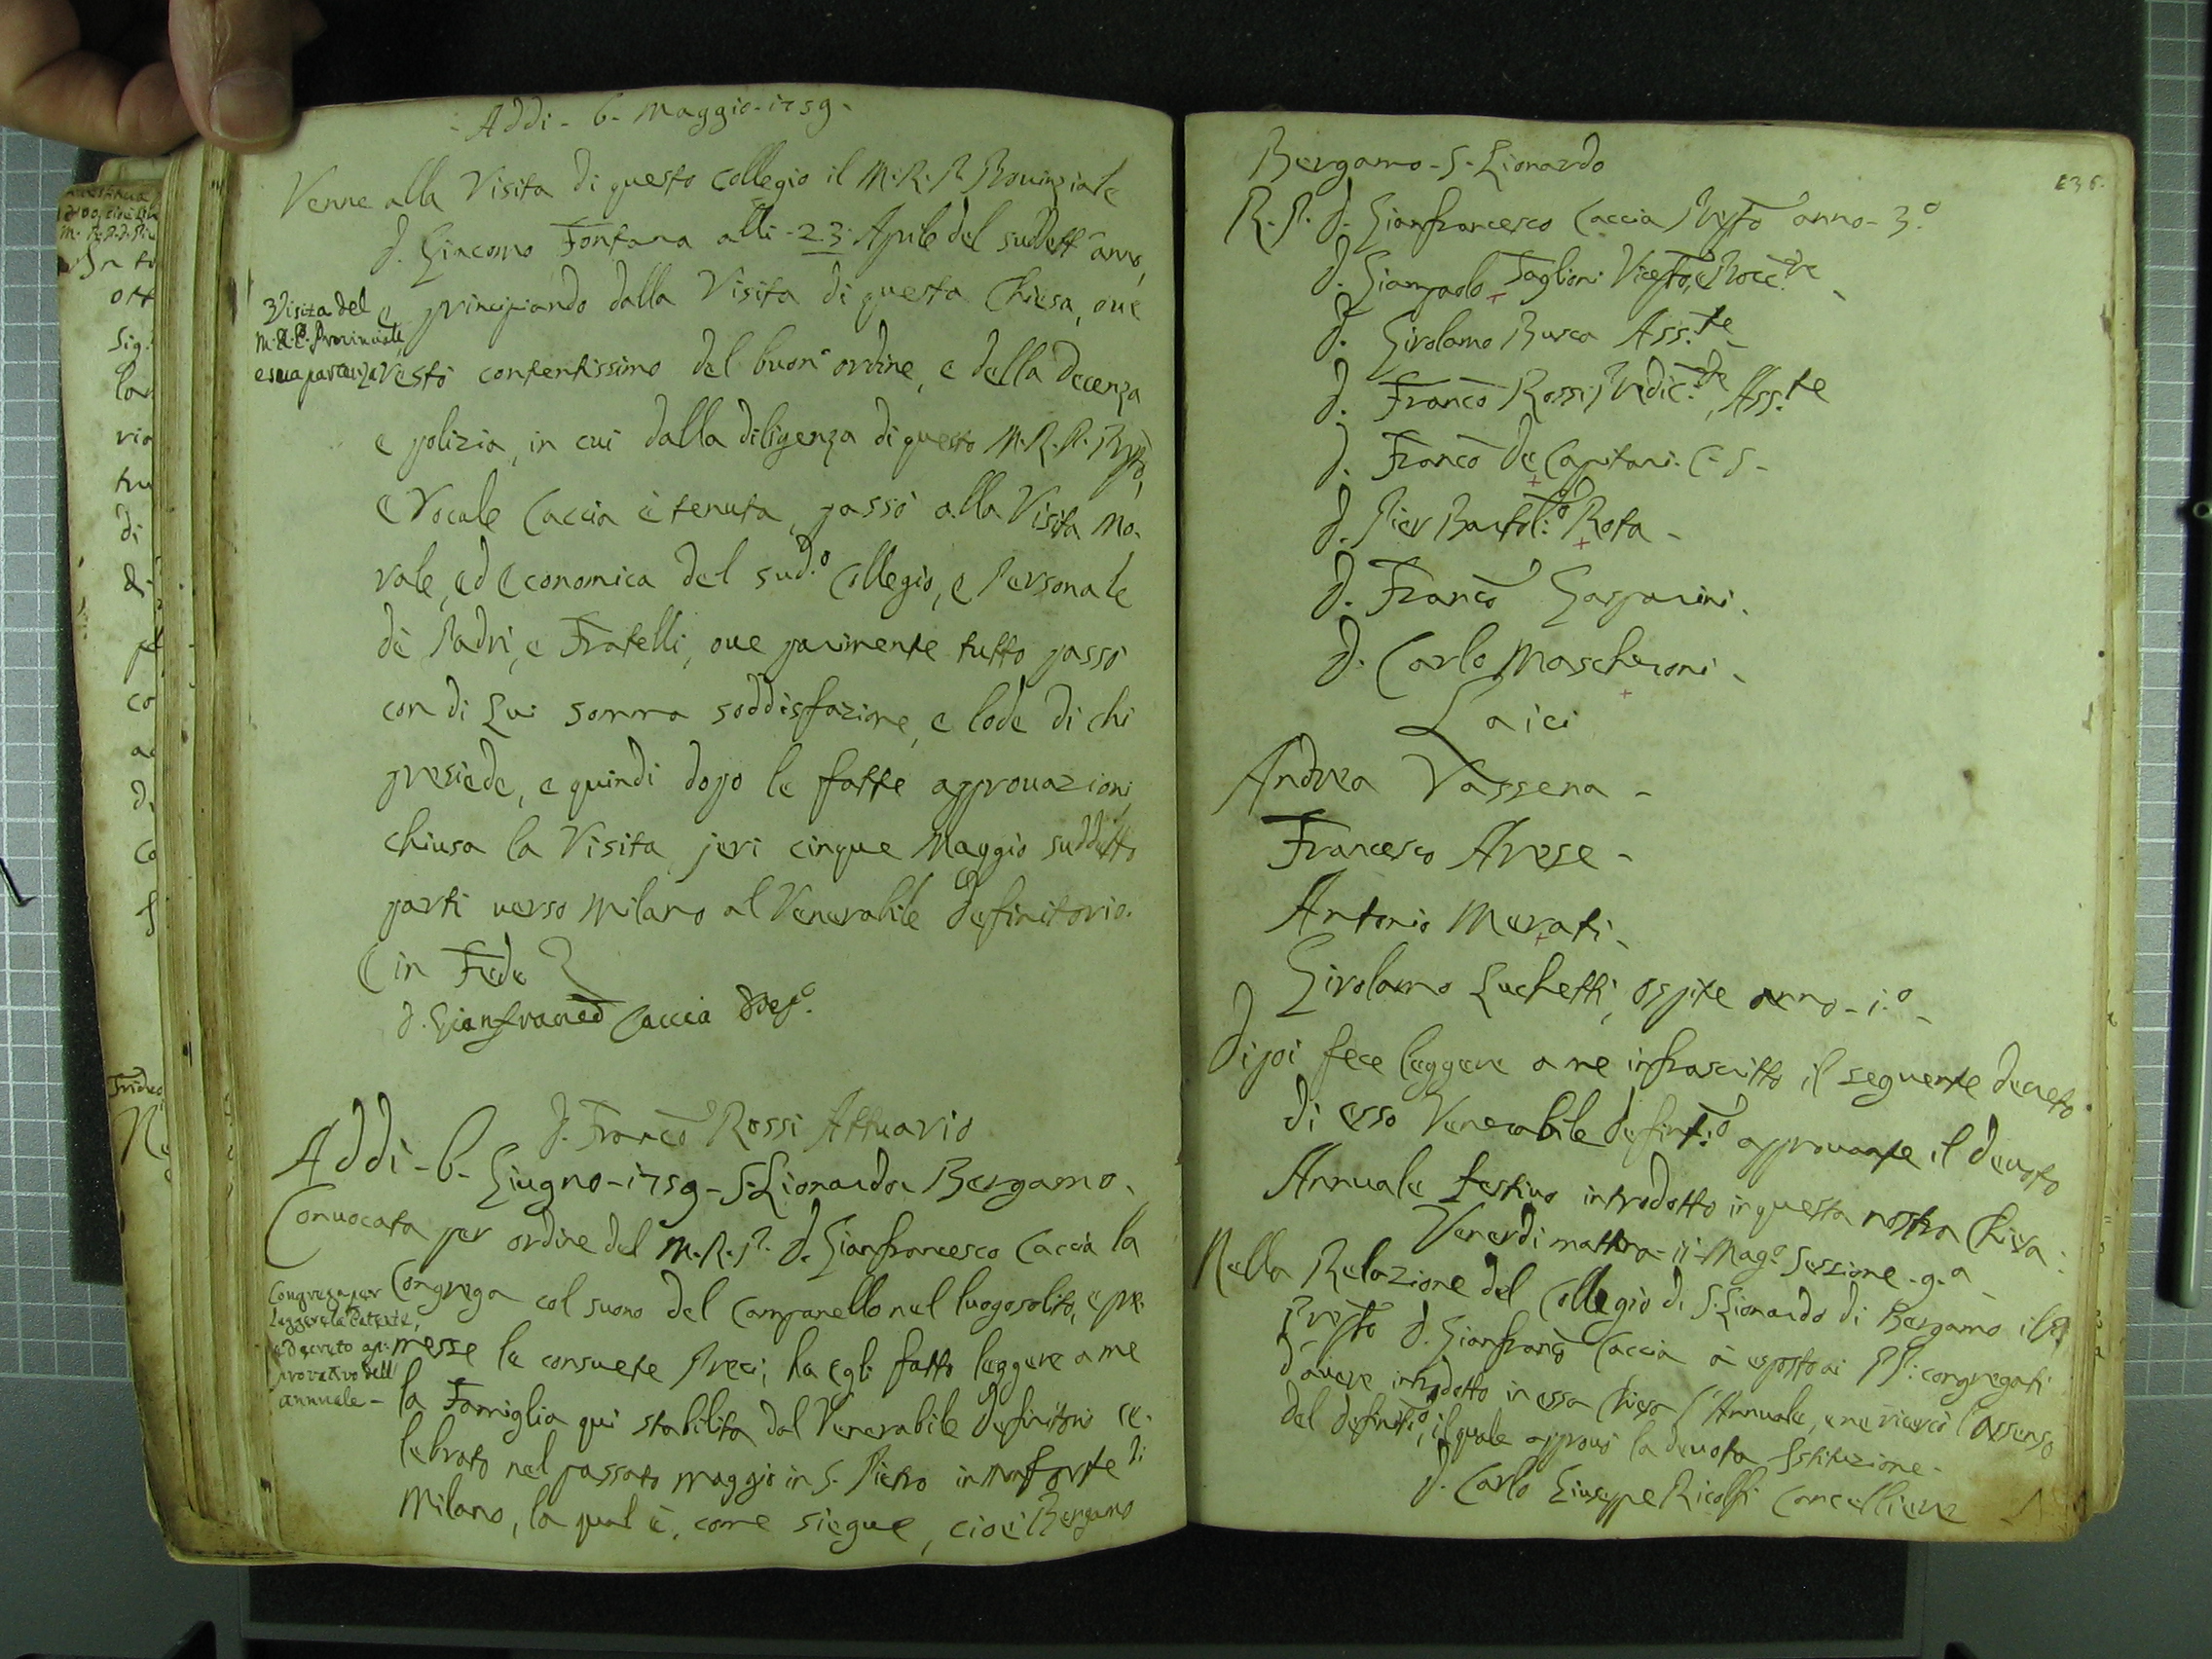 - Addi - 6 - Maggio - 1759 -
Venne alla Visita di questo Collegio il M. R. P. Prouinziale
d. Giacomo Fontana alli - 23 - Aprile del suddett' anno,
e principiando dalla Visita di questa Chiesa, oue
restò contentissimo del buon' ordine, e della decenza
e polizia, in cui dalla diligenza di questo M. R. P. Prpto,
e Vocale Caccia è tenuta, passò alla Visita Mo-
rale, ed Economica del sud.o Collegio, e Personale
dè Padri, e Fratelli, oue parimente tutto passò
con di Lui somma soddisfazione, e lode di chi
presiede, e quindi dopo le fatte approuazioni,
chiusa la Visita jeri cinque Maggio suddetto
partì uerso Milano al Venerabile definitorio.
E in Fede
d. Gianfranco Caccia Prep.o
d. Franco Rossi Attuario
Visita del
M. R. P. Prouinciale
e sua partenza
Addi - 6 - Giugno - 1759 - S. Lionardo. Bergamo.
Conuocata per ordine del M. R. P. d. Gianfrancesco Caccia la
Congrega col suono del Campanello nel luogo solito, e pre-
messe le consuete Preci; ha egli fatto leggere a me
la Famiglia qui stabilita dal Venerabile definitorio ce-
lebrato nel passato maggio in S. Pietro in Monforte di
Milano, la qual è, come siegue, cioè Bergamo
Congrega per
leggere la Patente,
e decreto ap-
prouatiuo dell'
annuale -
136.
Bergamo - S. Lionardo
R. P. d. Gianfrancesco Caccia Prepto anno - 3.o
d. Giampaolo Taglioni Vicepto, e Procc.re -
d. Girolamo Rusca Ass.te -
d. Franco Rossi Predic.re, Ass.te
d. Franco De Capitani. C. S -
d. Pier Bartol.o Rota -
d. Franco Gasparini.
d. Carlo Mascheroni -
Laici
Andrea Vassena -
Francesco Arese -
Antonio Merati -
Girolamo Luchetti, ospite anno - 1.o -
Di poi fece leggere a me infrascritto il seguente decreto
di esso Venerabile definit.o approuante il deuoto
Annuale festiuo introdotto in questa nostra Chiesa:
Venerdi mattina - 11 - Mag.o Sessione - 9.a -
Nella Relazione del Collegio di S. Lionardo di Bergamo il P.
Prepto d. Gianfranco Caccia à esposto ai PP: congregati
d'auere introdotto in essa Chiesa l'Annuale, e ne ricercò l'assenso
del definit.o, il quale approuò la deuota Istituzione -
d. Carlo Giuseppe Ricolfi Cancelliere